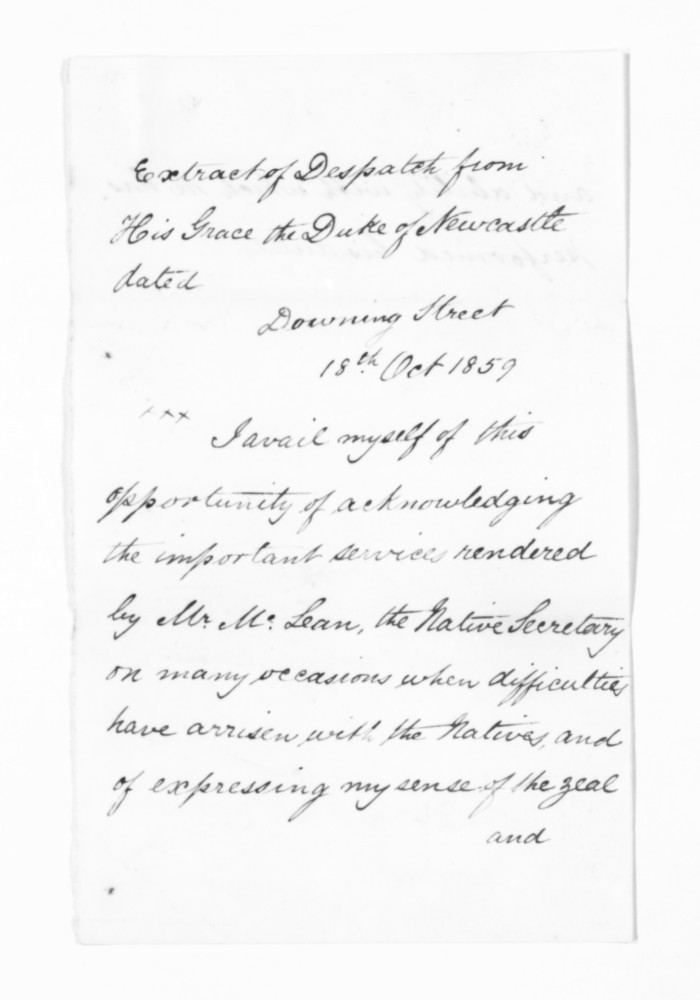 Extract of Despatch from
His Grace the Duke of Newcastle
dated
Downing Street
18th. Oct 1859
xxx I avail myself of this
opportunity of acknowledging
the important services rendered
by Mr. Mc. Lean, the Native Secretary
on many occasions when difficulties
have arrisen with the Natives, and
of expressing my sense of the zeal
and